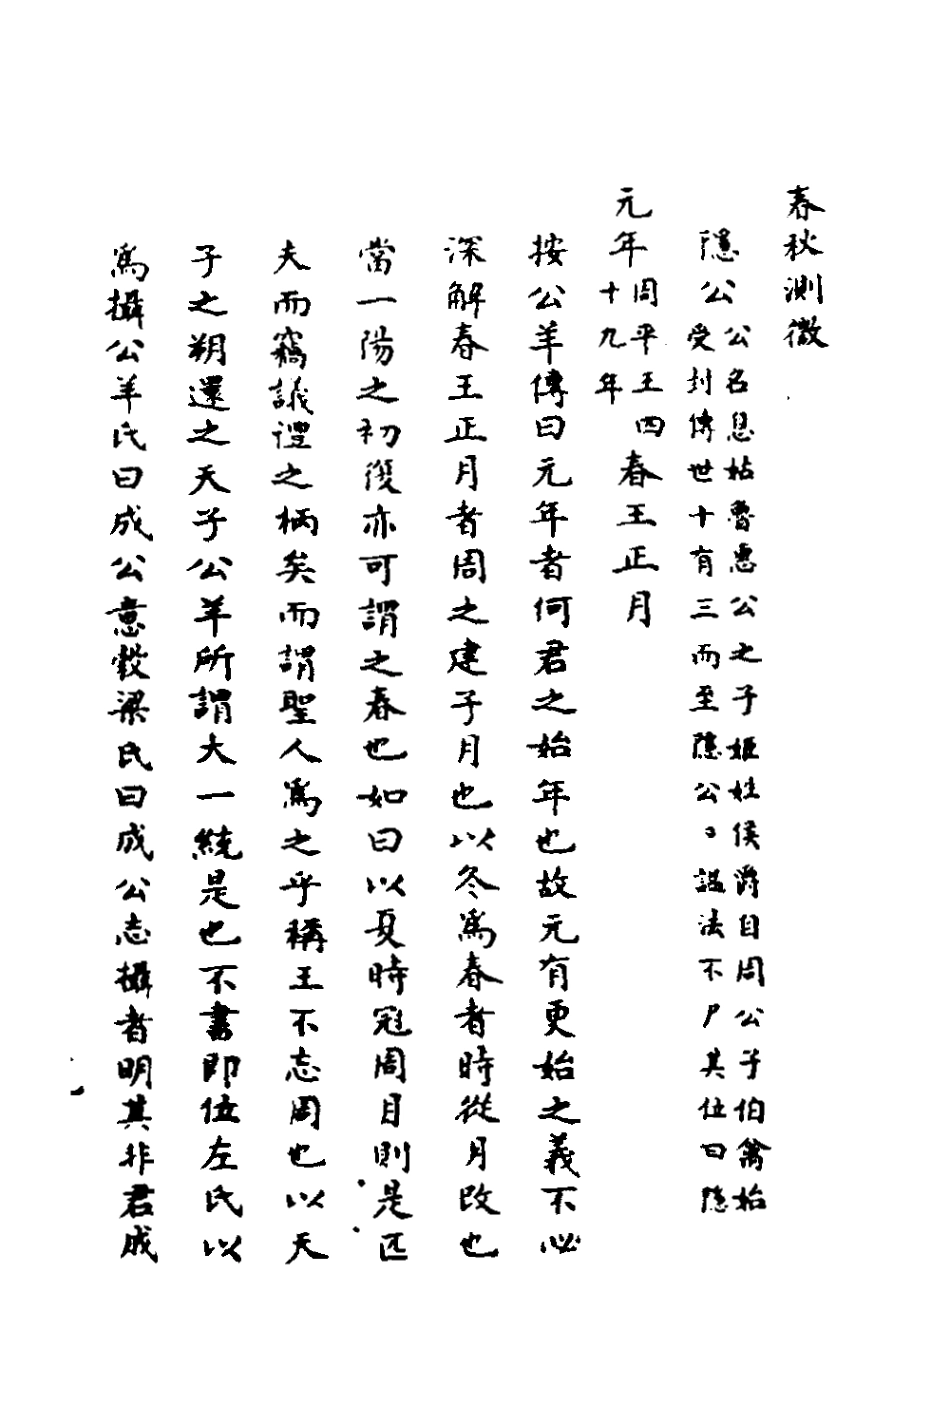 春秋測微
隱公公名息姑魯惠公之子姬姓侯爵自周公子伯禽始
受封傳世十有三而至隱公。謚法不尸其位曰隱
元年周平王四十九年春王正月
按公羊傳曰元年者何君之始年也故元有更始之義不必
深解春王正月者周之建子月也以冬為春者時從月改也
當一陽之初復亦可謂之春也如曰以夏時冠周月則是匹
夫而竊議禮之柄矣而謂聖人為之乎稱王不忘周也以天
子之朔還之天子公羊所謂大一統是也不書即位左氏以
為攝公羊氏曰成公意穀梁氏曰成公志攝者明其非君成